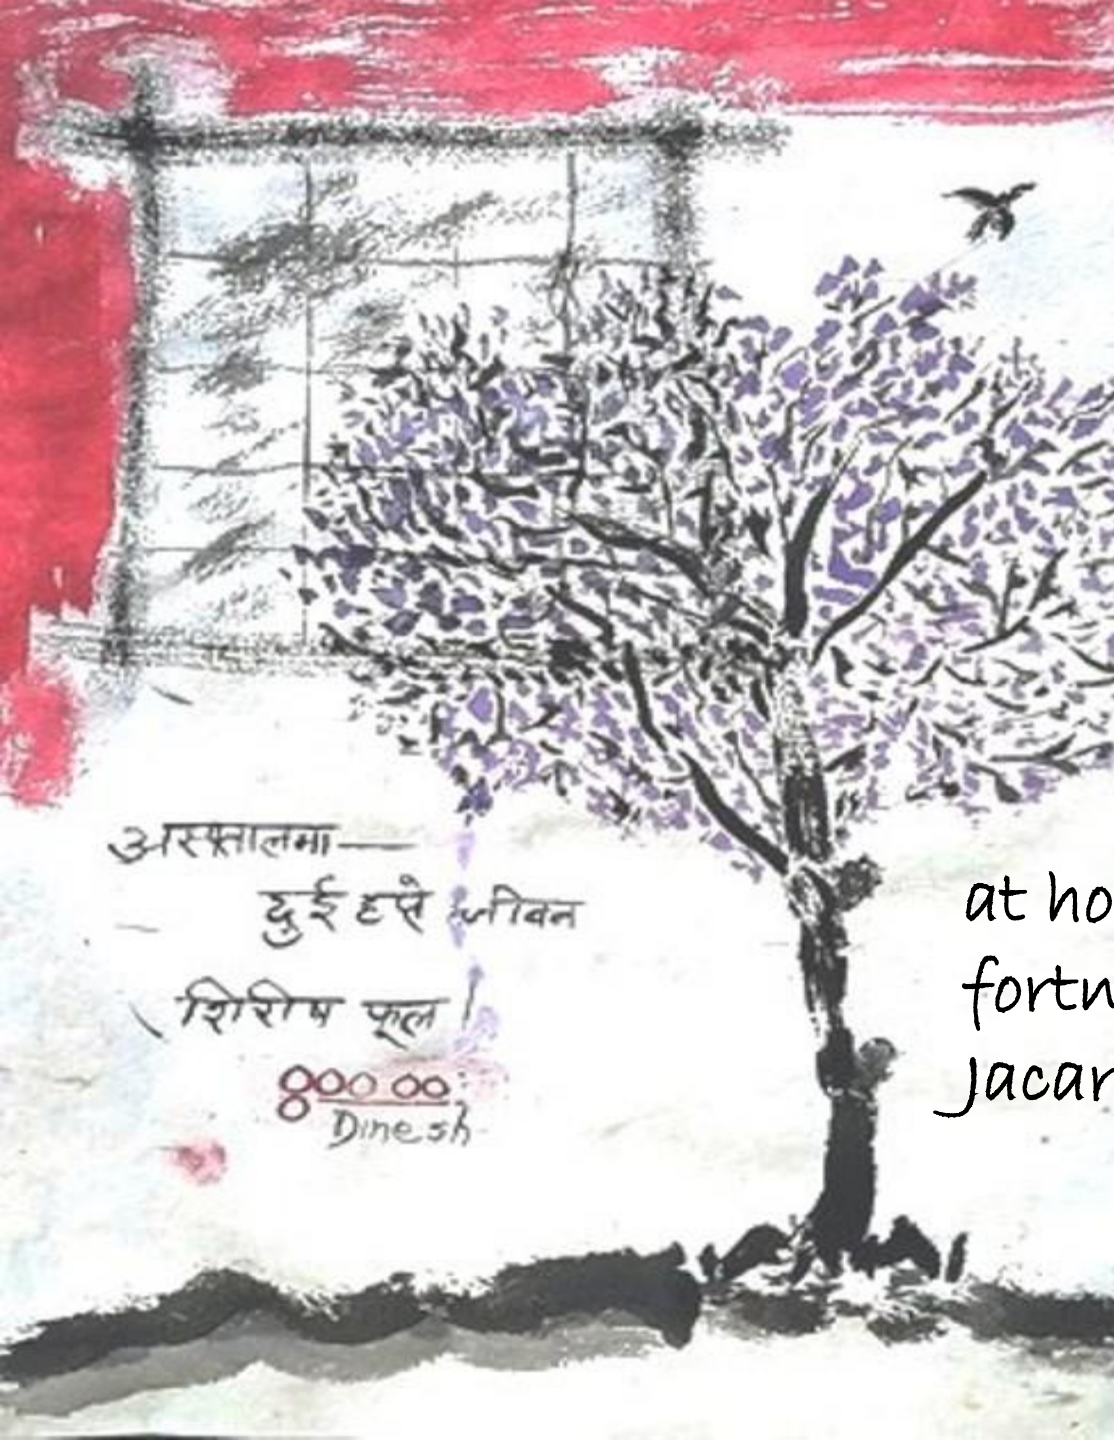 अस्पतालमा—
दुई हप्ते जीवन
शिरीष फूल।
Dinesh
at ho
fortn
Jacar